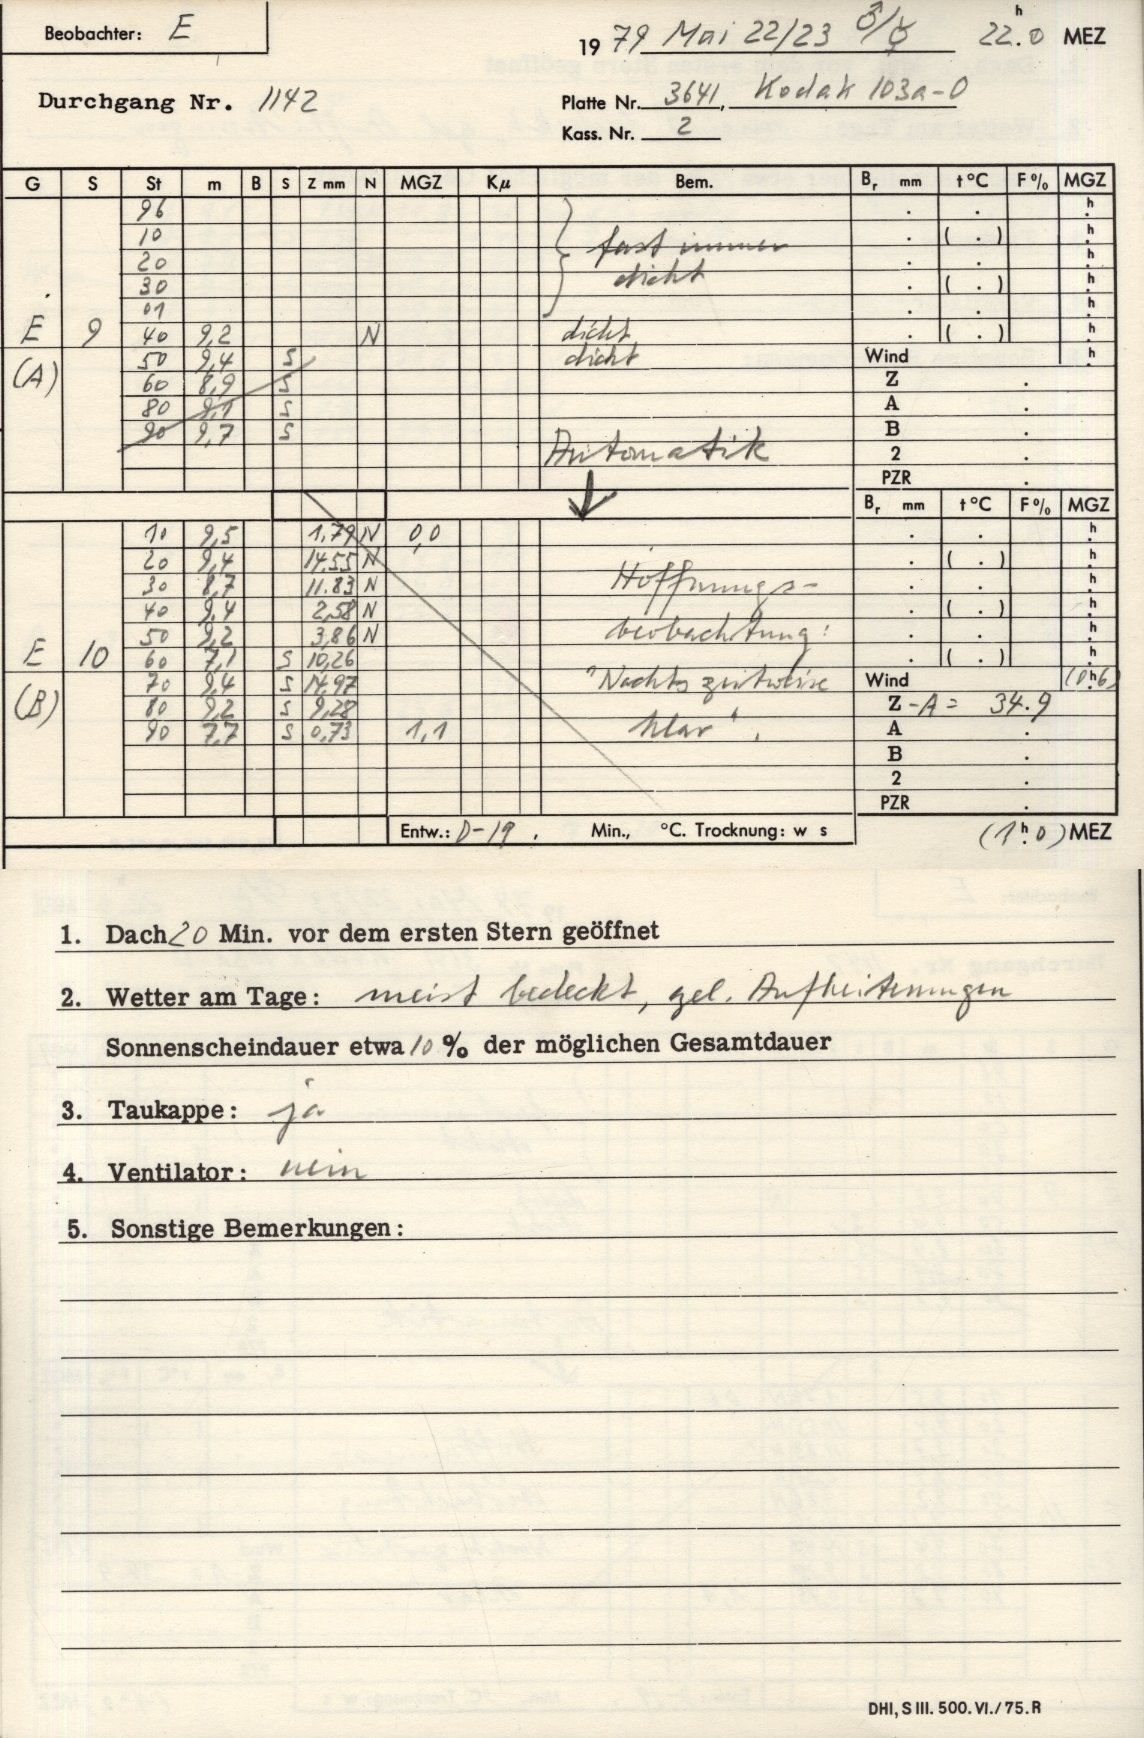 Beobachter: E
1979 Mai 22/23 ♂/☿ 22.h0 MEZ
Durchgang Nr. 1142
Platte Nr. 3641, Kodak 103a-O
Kass. Nr. 2
G S St m B S Z mm N MGZ Kμ Bem. Br mm t°C F% MGZ
96 . . h
10 . ( . ) h
20 fast immer . . h
30 dicht . ( . ) h
01 . . h
E 9 40 9,2 N dicht . ( . ) h
(A) 50 9,4 S dicht Wind h
60 8,9 S Z .
80 9,1 S A .
90 9,7 S B .
Automatik 2 .
PZR .
Br mm t°C F% MGZ
10 9,5 1,79 N 0,0 . . h
20 9,4 14.55 N . ( . ) h
30 8,7 11.83 N Hoffnungs- . . h
40 9,4 2,58 N . ( . ) h
50 9,2 3,86 N beobachtung: . . h
E 10 60 7,1 S 10,26 . ( . ) h
(B) 70 9,4 S 14,97 "Nachts zeitweise Wind (0h.6)
80 9,2 S 9,28 Z -A= 34.9
90 7,7 S 0,73 1,1 klar". A .
B .
2 .
PZR .
Entw.: D-19, Min., °C. Trocknung: w s (1h.0) MEZ
1. Dach 20 Min. vor dem ersten Stern geöffnet
2. Wetter am Tage: meist bedeckt, gel. Aufheiterungen
Sonnenscheindauer etwa 10% der möglichen Gesamtdauer
3. Taukappe: ja
4. Ventilator: nein
5. Sonstige Bemerkungen:
DHI, S III. 500. VI./75. R